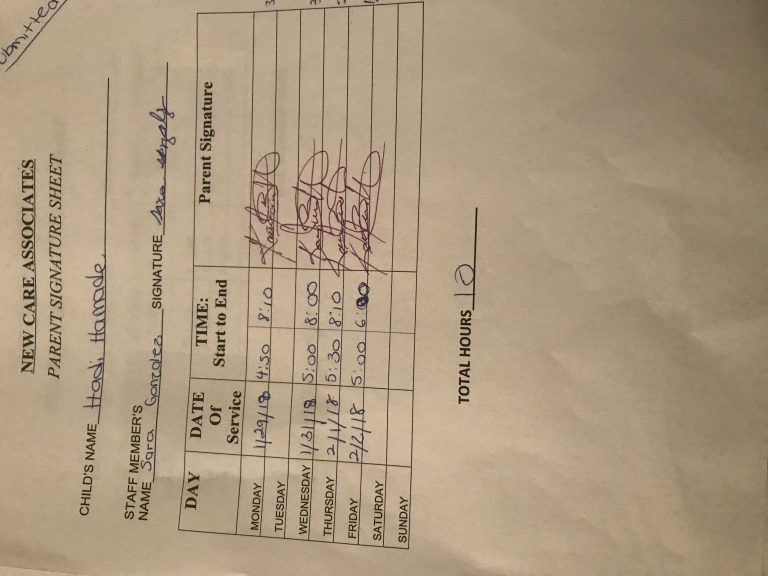 NEW CARE ASSOCIATES
PARENT SIGNATURE SHEET
CHILD'S NAME Hadi Hamade
STAFF MEMBER'S
NAME Sara Gonzalez SIGNATURE Sara
DAY DATE Of Service TIME: Start to End Parent Signature
MONDAY 1/29/18 4:50 8:10
TUESDAY
WEDNESDAY 1/31/18 5:00 8:00
THURSDAY 2/1/18 5:30 8:10
FRIDAY 2/2/18 5:00 6:00
SATURDAY
SUNDAY
TOTAL HOURS 10